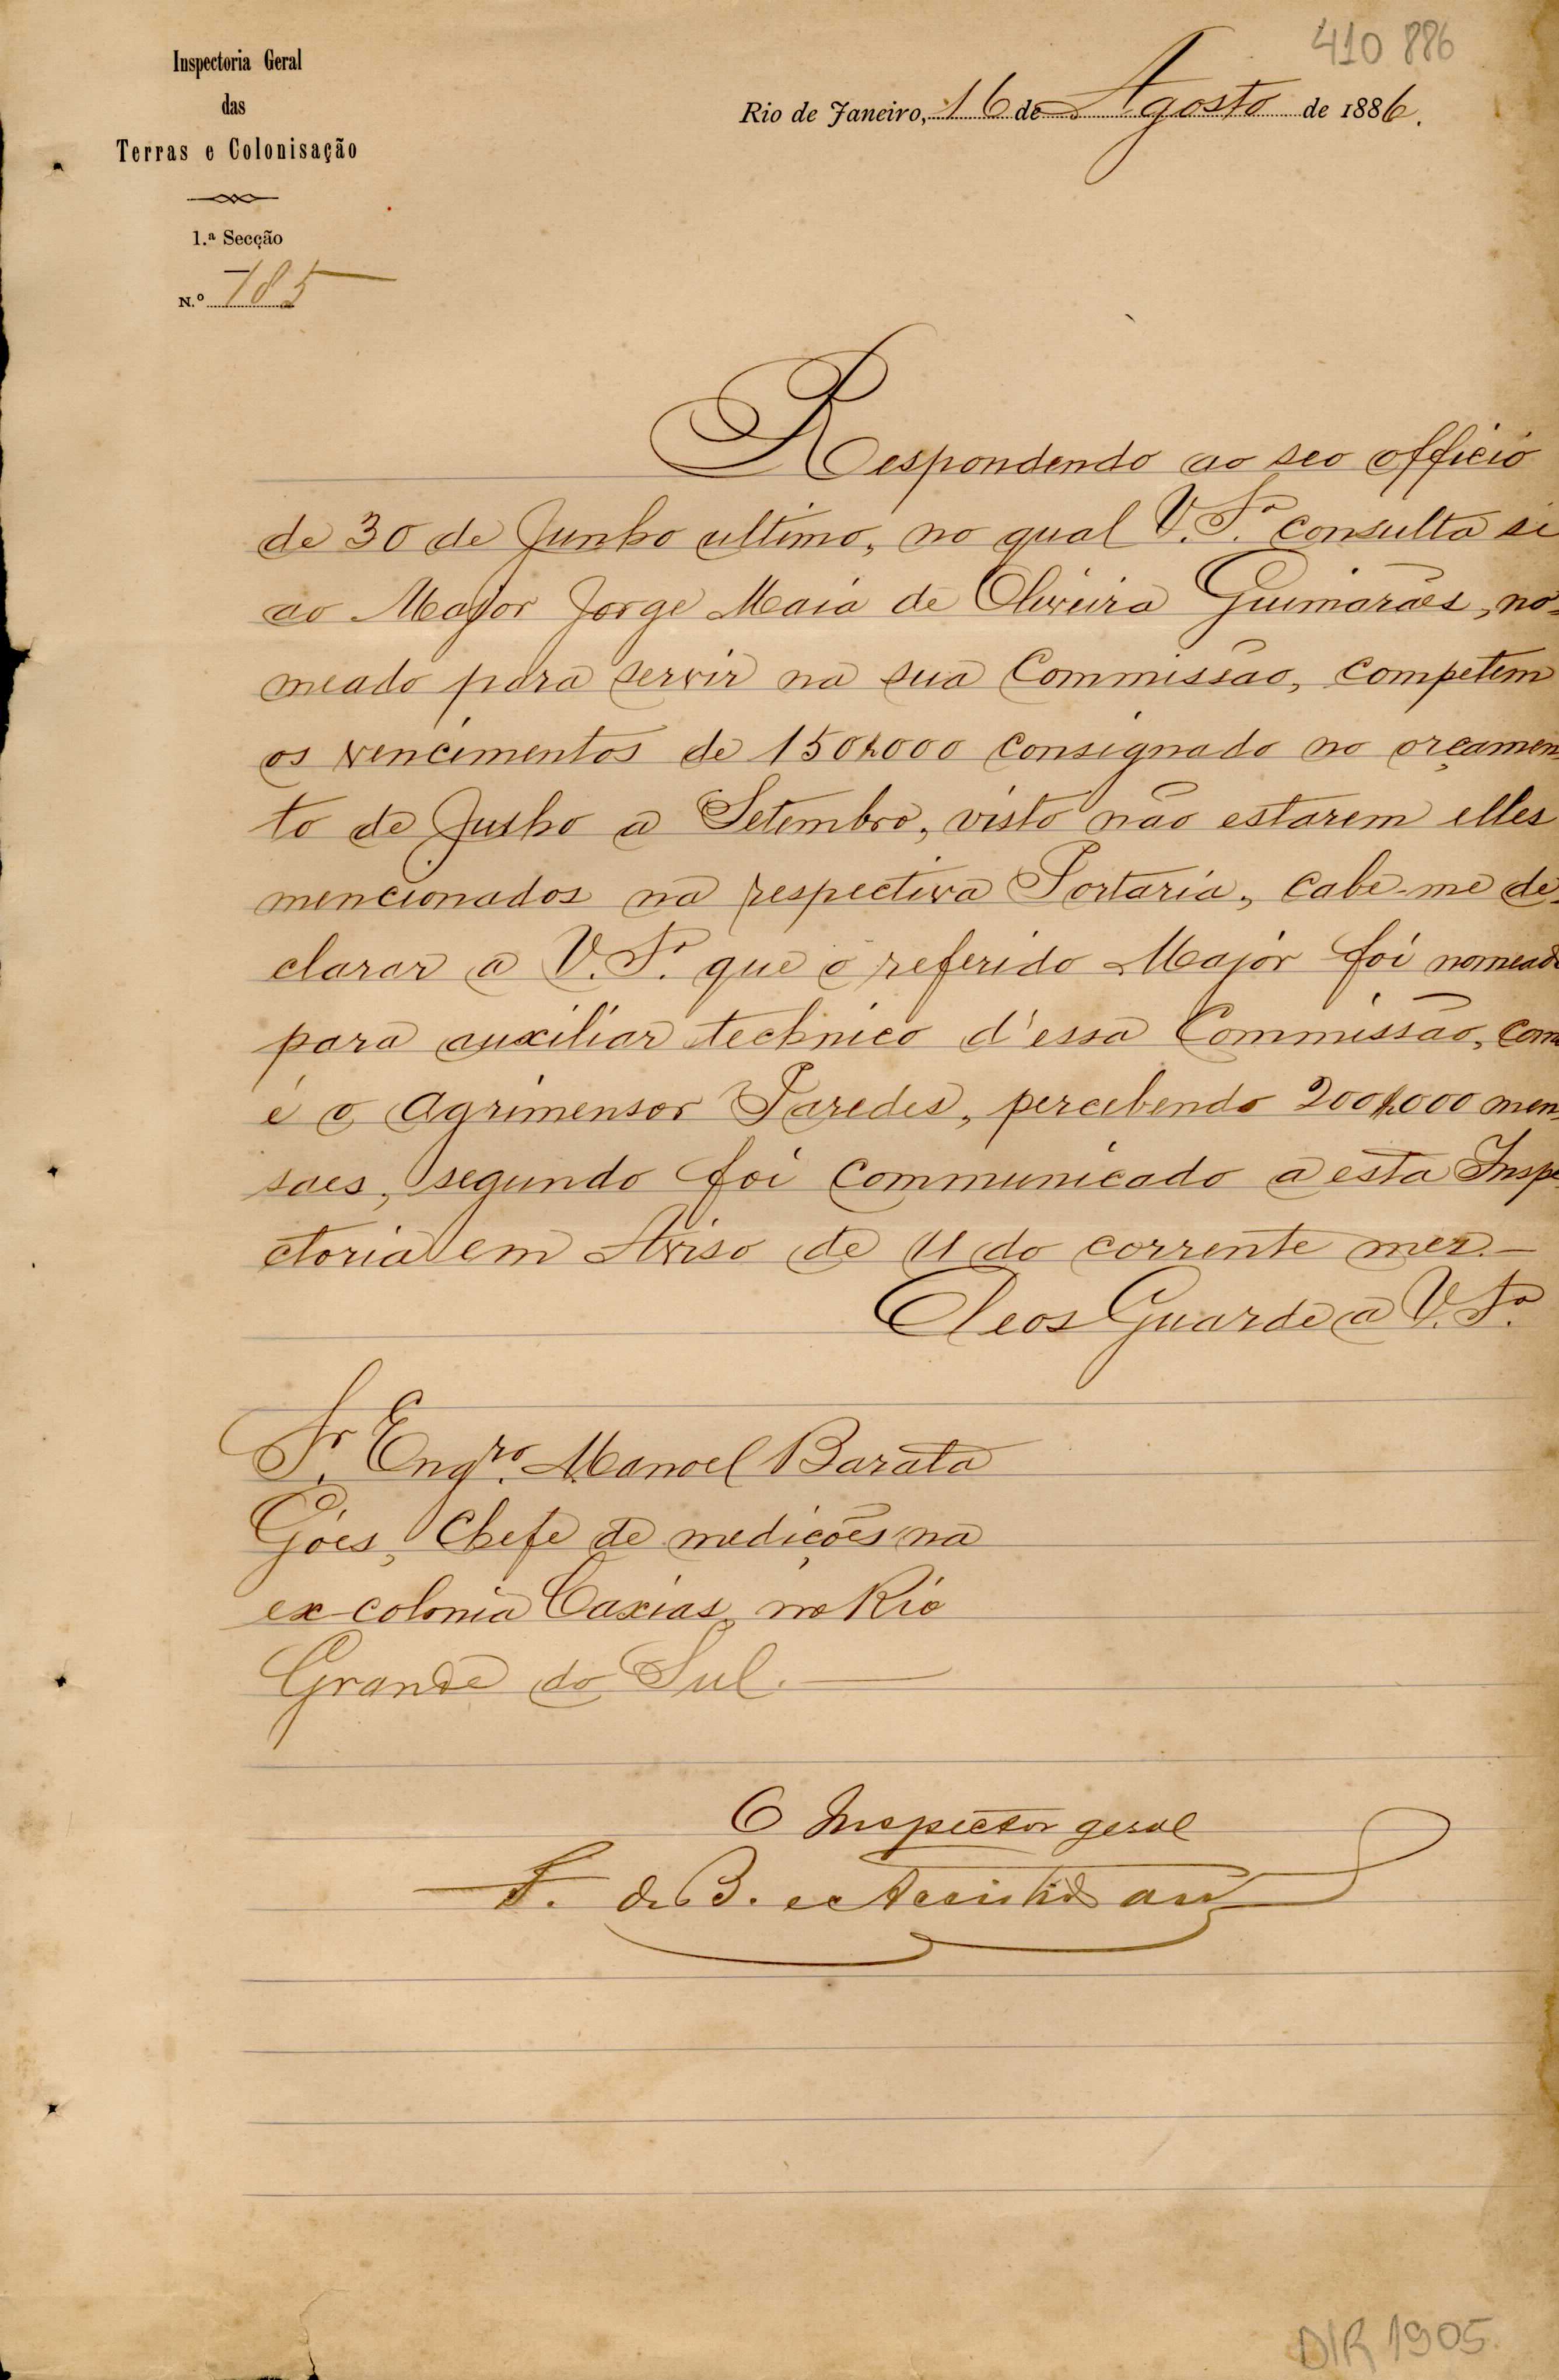 410 886
Inspectoria Geral
das
Terras e Colonisação
Rio de Janeiro, 16 de Agosto de 1886.
1.ª Secção
N.º 785
Respondendo ao seo officio
de 30 de Junho ultimo, no qual V. Sª consulta si
ao Major Jorge Maia de Oliveira Guimarães, no-
meado para servir na sua Commissão, competem
os vencimentos de 150$000 consignado no orçamen-
to de Julho a Setembro, visto não estarem elles
mencionados na respectiva Portaria, cabe-me de-
clarar a V. Sª que o referido Major foi nomeado
para auxiliar technico d'essa Commissão, como
é o Agrimensor Paredes, percebendo 200$000 men-
saes, segundo foi communicado a esta Inspe-
ctoria em Aviso de 11 do corrente mez.—
Deos Guarde a V. Sª
Sr. Engro. Manoel Barata
Góes, Chefe de medições na
ex-colonia Caxias, no Rio
Grande do Sul.—
O Inspector geral
F. de B. e Accioli de
DIR 1905.